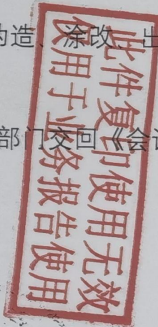 伪造、涂改、出
部门交回《会计
此件复印使用无效
仅用于业务报告使用